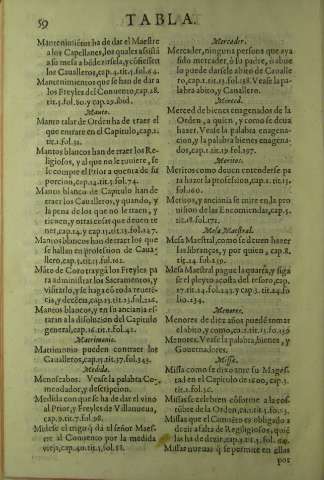 59
TABLA.
Mantenimiẽtos ha de dar el Maestre
a los Capellanes, los quales assistã
a su mesa a bẽdezirsela, y cõfiessen
los Caualleros, cap.4.tit.4.fol.64.
Mantenimientos que se han de dar a
los Freyles del Conuento, cap.28.
tit.3.fol.20. y cap.29.ibid.
Manto.
Manto talar de Orden ha de traer el
que entrare en el Capitulo, cap.1.
Mantos blancos han de traer los Re-
ligiosos, y al que no le tuuiere, se
le compre el Prior a quenta de su
porcion, cap.14.tit.5.fol.74.
Manto blanco de Capitulo han de
traer los Caualleros, y quando, y
la pena de los que no le traen, y
tienen, y otras cosas que deuen te
Mantos blancos han de traer los que
se hallan en profesion de Caua-
llero, cap.5.tit.13.fol.162.
para administrar los Sacramentos, y
visitarlo, y se haga cõ toda reueren-
Mantos blancos, y en su ancianía es-
taran a la disolucion del Capitulo
general, cap.16.tit.1.fol.42.
Matrimonio.
Matrimonio pueden contraer los
Caualleros, cap.1.tit.17.fol.245.
Medida.
Menoscabos. Vease la palabra Co-
mendador, y descripcion.
Medida con que se ha de dar el vino
al Prior, y Freyles de Villanueua,
cap.9.tit.7.fol.98.
Midese el trigo que da el señor Maes-
tre al Conuento por la medida
vieja, cap.40.tit.3.fol.58.
Mercader.
Mercader, ninguna persona que aya
sido mercader, o lo padre, o abue
lo puede darsele abito de Caualle
ro, cap.1.tit.13.fol.158. Vease la pa-
labra abito, y Cauallero.
Merced.
Merced de bienes enagenados de la
Orden, a quien, y como se deua
hazer. Vease la palabra enagena-
cion, y la palabra bienes enagena-
dos, cap.1.tit.19.fol.297.
Meritos.
Meritos como deuen entenderse pa
ra hazer la profesion, cap.1.tit.13.
fol.160.
Meritos, y ancianía se mire en la pro
uision de las Encomiendas, cap.5.
tit.18.fol.171.
Mesa Maestral.
Mesa Maestral, como se deuen hazer
las libranças, y por quien, cap.8.
tit.24.fol.239.
Mesa Maestral pague la guarda, y siga
se el pleyto a costa del tesoro, cap.
Menores.
Menores de diez años puede tomar
el abito, y como, cap.1.tit.13.fo.159
Menores. Vease la palabra, bienes, y
Gouernadores.
Missa.
Missa como se dixo ante su Mages-
tad en el Capitulo de 1600, cap.3.
tit.1.fol.35.
Missas se celebren cõforme a la cos-
tũbre de la Ordẽ, cap.1.tit.5.fo.
Missas que el Conuẽto es obligado a
dezir a falta de Religiosos, quiẽ
las ha de dezir, cap.3.tit.4.fol.
Missas nueuas que se permite en ellas
por